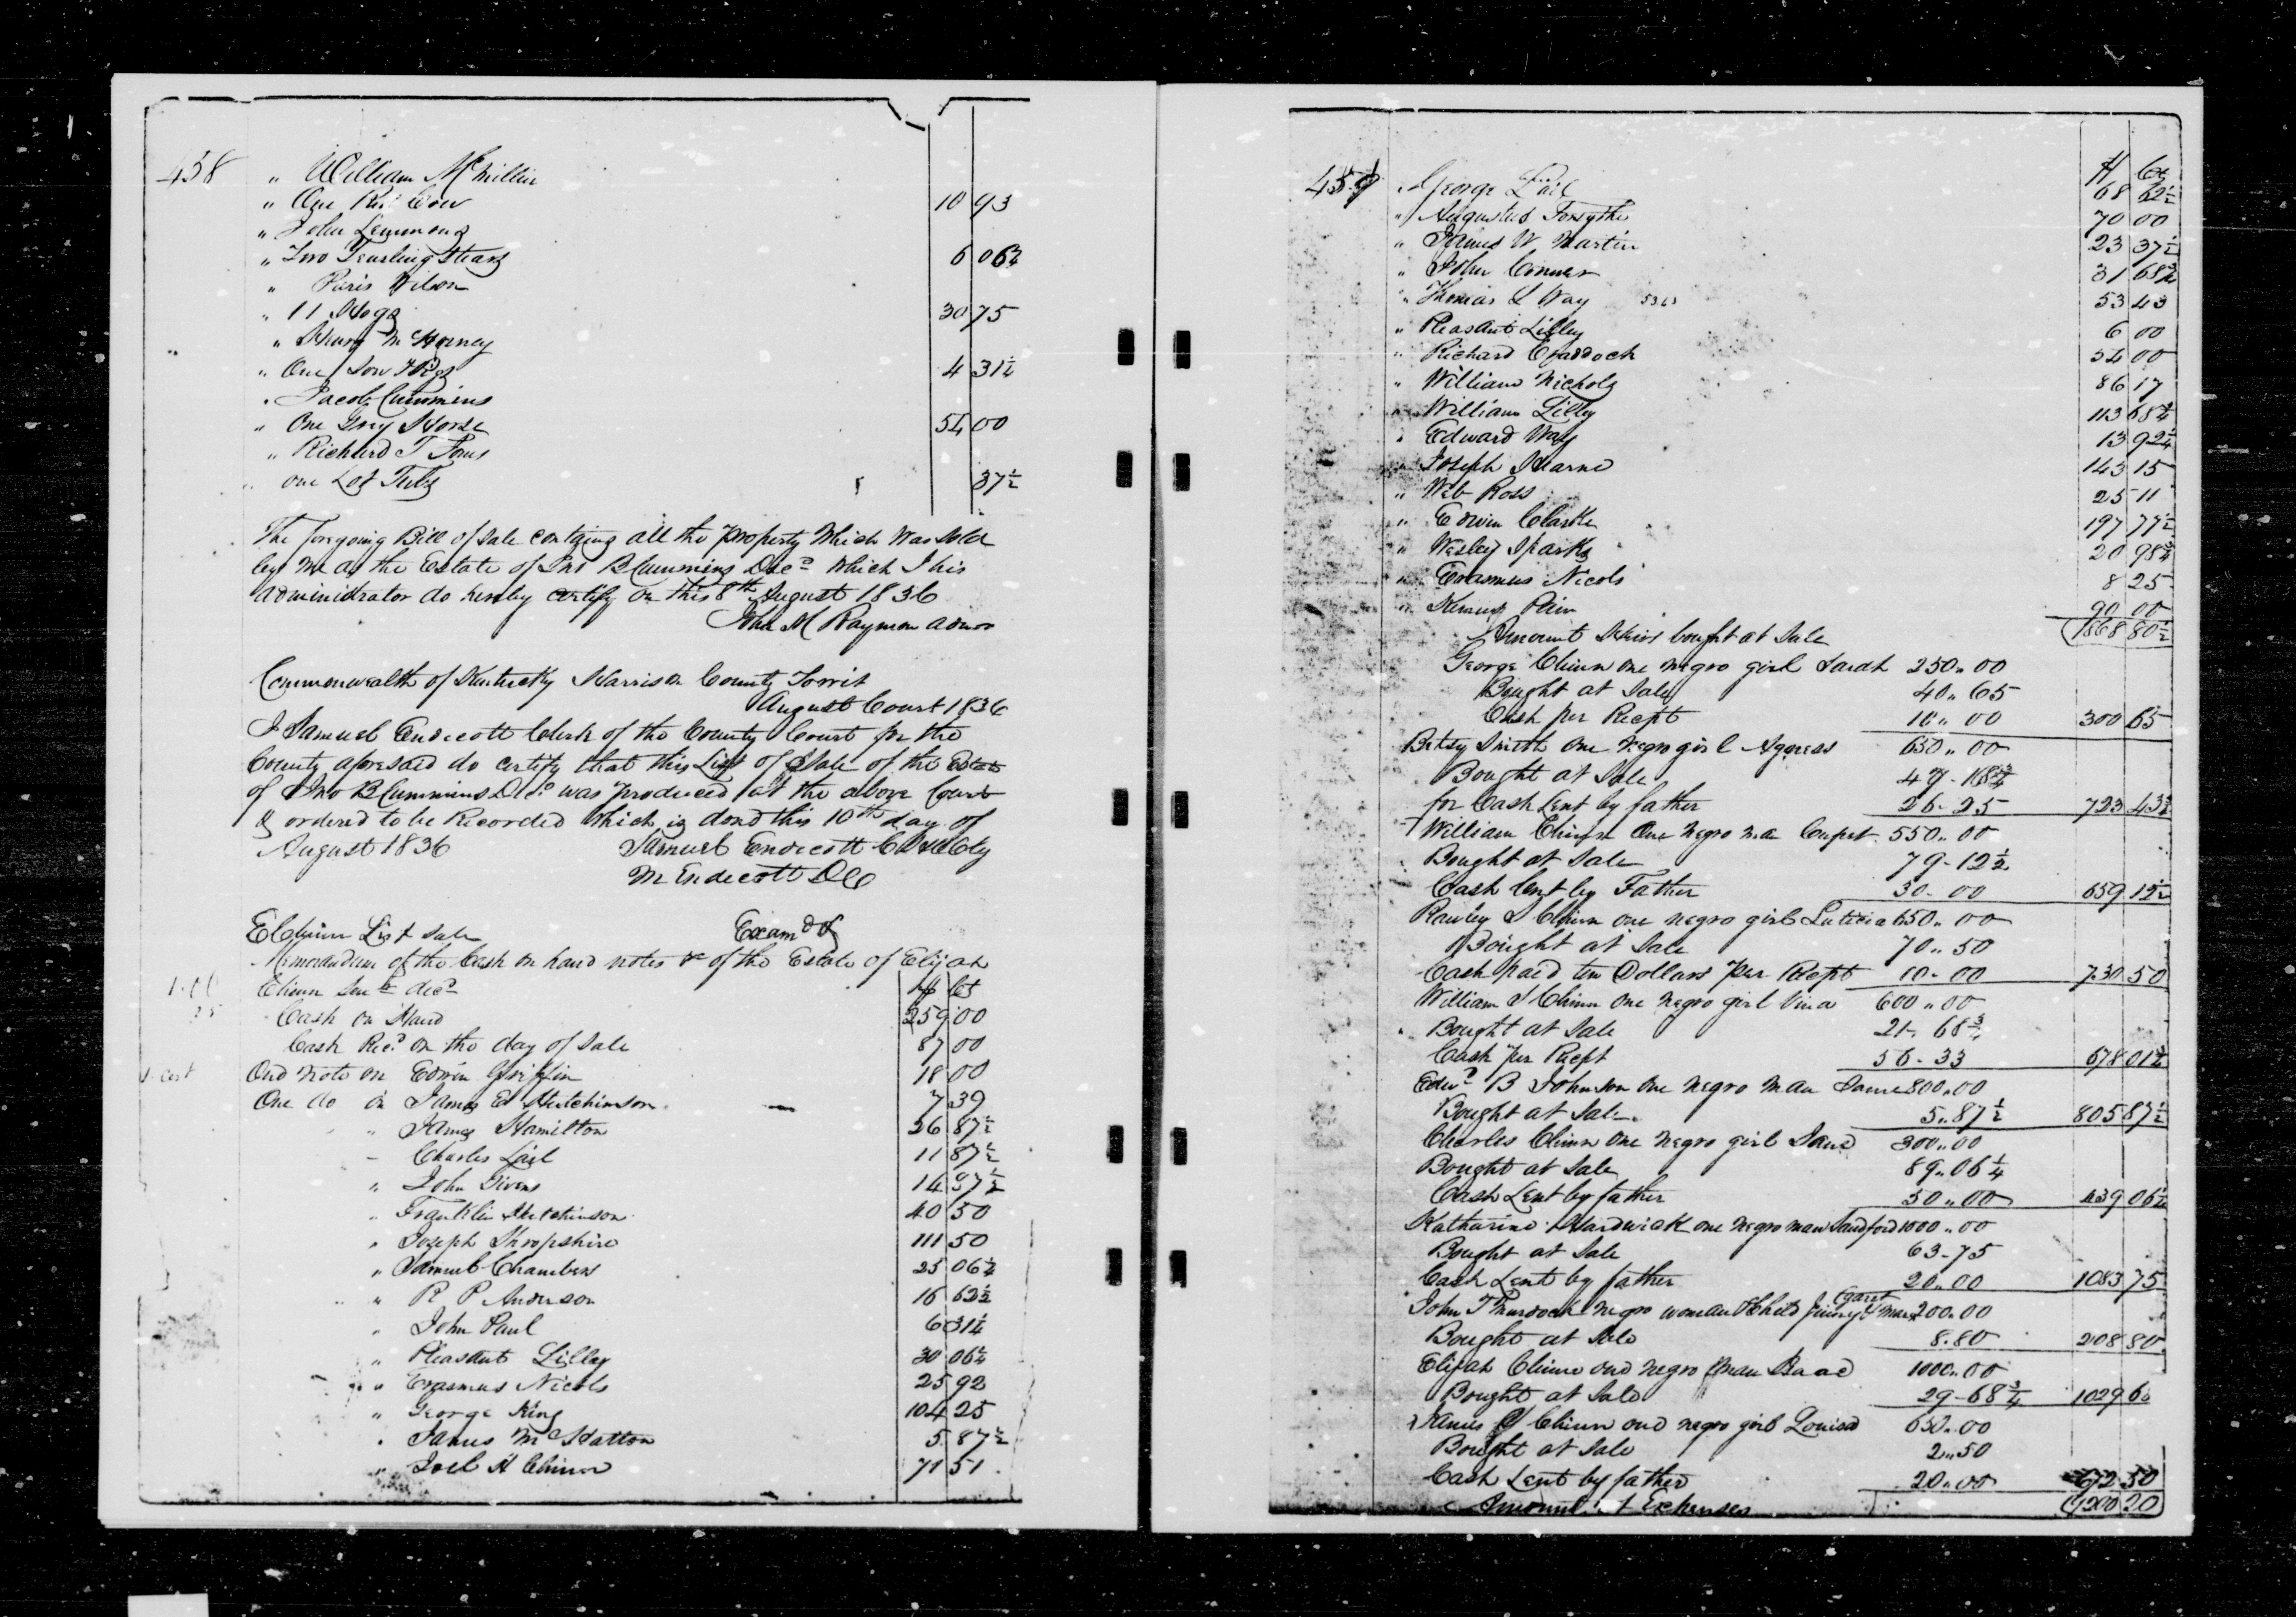 458
" William McMillin
" One Red Cow 10 93
" John Lemmons
" Two Yearling Stears 6 06¼
" Paris Wilson
" 11 Hogs 30 75
" Henry McHorney
" One Sow & Pigs 4 31¼
" Jacob Cummins
" One Grey Horse 54 00
" Richard T
" one Lot Tubs 37½
The foregoing Bill of Sale contains all the property Which was sold
by me as the Estate of Jno B Cummins Decd which I his
administrator do hereby certify on this 8th August 1836
John M Raymon admor
Commonwealth of Kentucky Harrison County Towit
August Court 1836
I Samuel Endicott Clerk of the County Court for the
County aforesaid do certify that this List of Sale of the Estate
of Jno B Cummins Decd was produced at the above Court
& ordered to be Recorded which is dond this 10th day of
August 1836 Samuel Endicott
M Endicott DC
E Chinn List Sale Examd
Memorandum of the Cash on hand notes & of the Estate of Elijah
Chinn Senr decd $ cts
Cash on Hand 259 00
Cash Recd on the day of Sale 87 00
Ond note on Edwin Griffin 18 00
One do on James Ed Hutchinson 7 39
" James Hamilton 26 87½
" Charles Lail 11 87½
" John Givens 14 37½
" Franklin Hutchinson 40 50
" Joseph Shropshire 111 50
" Samuel Chambers 25 06¼
" R P Anderson 16 62½
" John Paul 6 31¼
" Pleasant Lilley 30 06¼
" Erasmus Nicols 25 92
" George King 104 25
" James McHatton 5 87½
" Joel H Chinn 71 51
459 $ Cts
" George Lail 68 62½
" Augustus Forsythe 70 00
" James W Martin 23 37½
" John Conner 31 68¾
" Thomas L Way 5343 53 43
" Pleasant Lilley 6 00
" Richard Craddock 34 00
" William Nichols 86 17
" William Lilley 113 68¾
" Edward Way 13 92¼
" Joseph Hearne 143 15
" Web Ross 25 11
" Edwin Clarke 197 77½
" Wesley Sparks 20 98¾
" Erasmus Nicols 8 25
" 90 00
Amount Heirs bought at Sale 1868 80½
George Chinn one negro girl Sarah 250 " 00
Bought at Sale 40 " 65
Cash per Recpt 10 " 00 300 65
Betsy Smith one Negro girl Aggness 650 " 00
Bought at Sale 47 - 18¾
for Cash Lent by father 26 - 25 723 43¾
William Chinn One Negro man 550 " 00
Bought at Sale 79 - 12½
Cash Lent by Father 30 - 00 659 12½
Rawley S Chinn one negro girl Luticia 650 " 00
Bought at Sale 70 " 50
Cash paid ten Dollars per Recpt 10 - 00 730 50
William S Chinn one negro girl Vina 600 " 00
Bought at Sale 21 " 68¾
Cash per Recpt 56 - 33 678 01¾
Edwd B Johnson one negro man 800 " 00
Bought at Sale 5 " 87½ 805 87½
Charles Chinn one negro girl Jane 300 " 00
Bought at Sale 89 " 06¼
Cash Lent by father 50 " 00 439 06¼
Katharine Hardwick one negro man Sandford 1000 " 00
Bought at Sale 63 - 75
Cash Lent by father 20 " 00 1083 75
John T Murdock negro woman & Child 200 " 00
Bought at Sale 8 " 80 208 80
Elijah Chinn ond negro man Isaac 1000 " 00
Bought at Sale 29 - 68¾ 1029 68
James Chinn ond negro girl Louisa 650 " 00
Bought at Sale 2 " 50
Cash Lent by father 20 " 00 672 50
Amount of Expenses